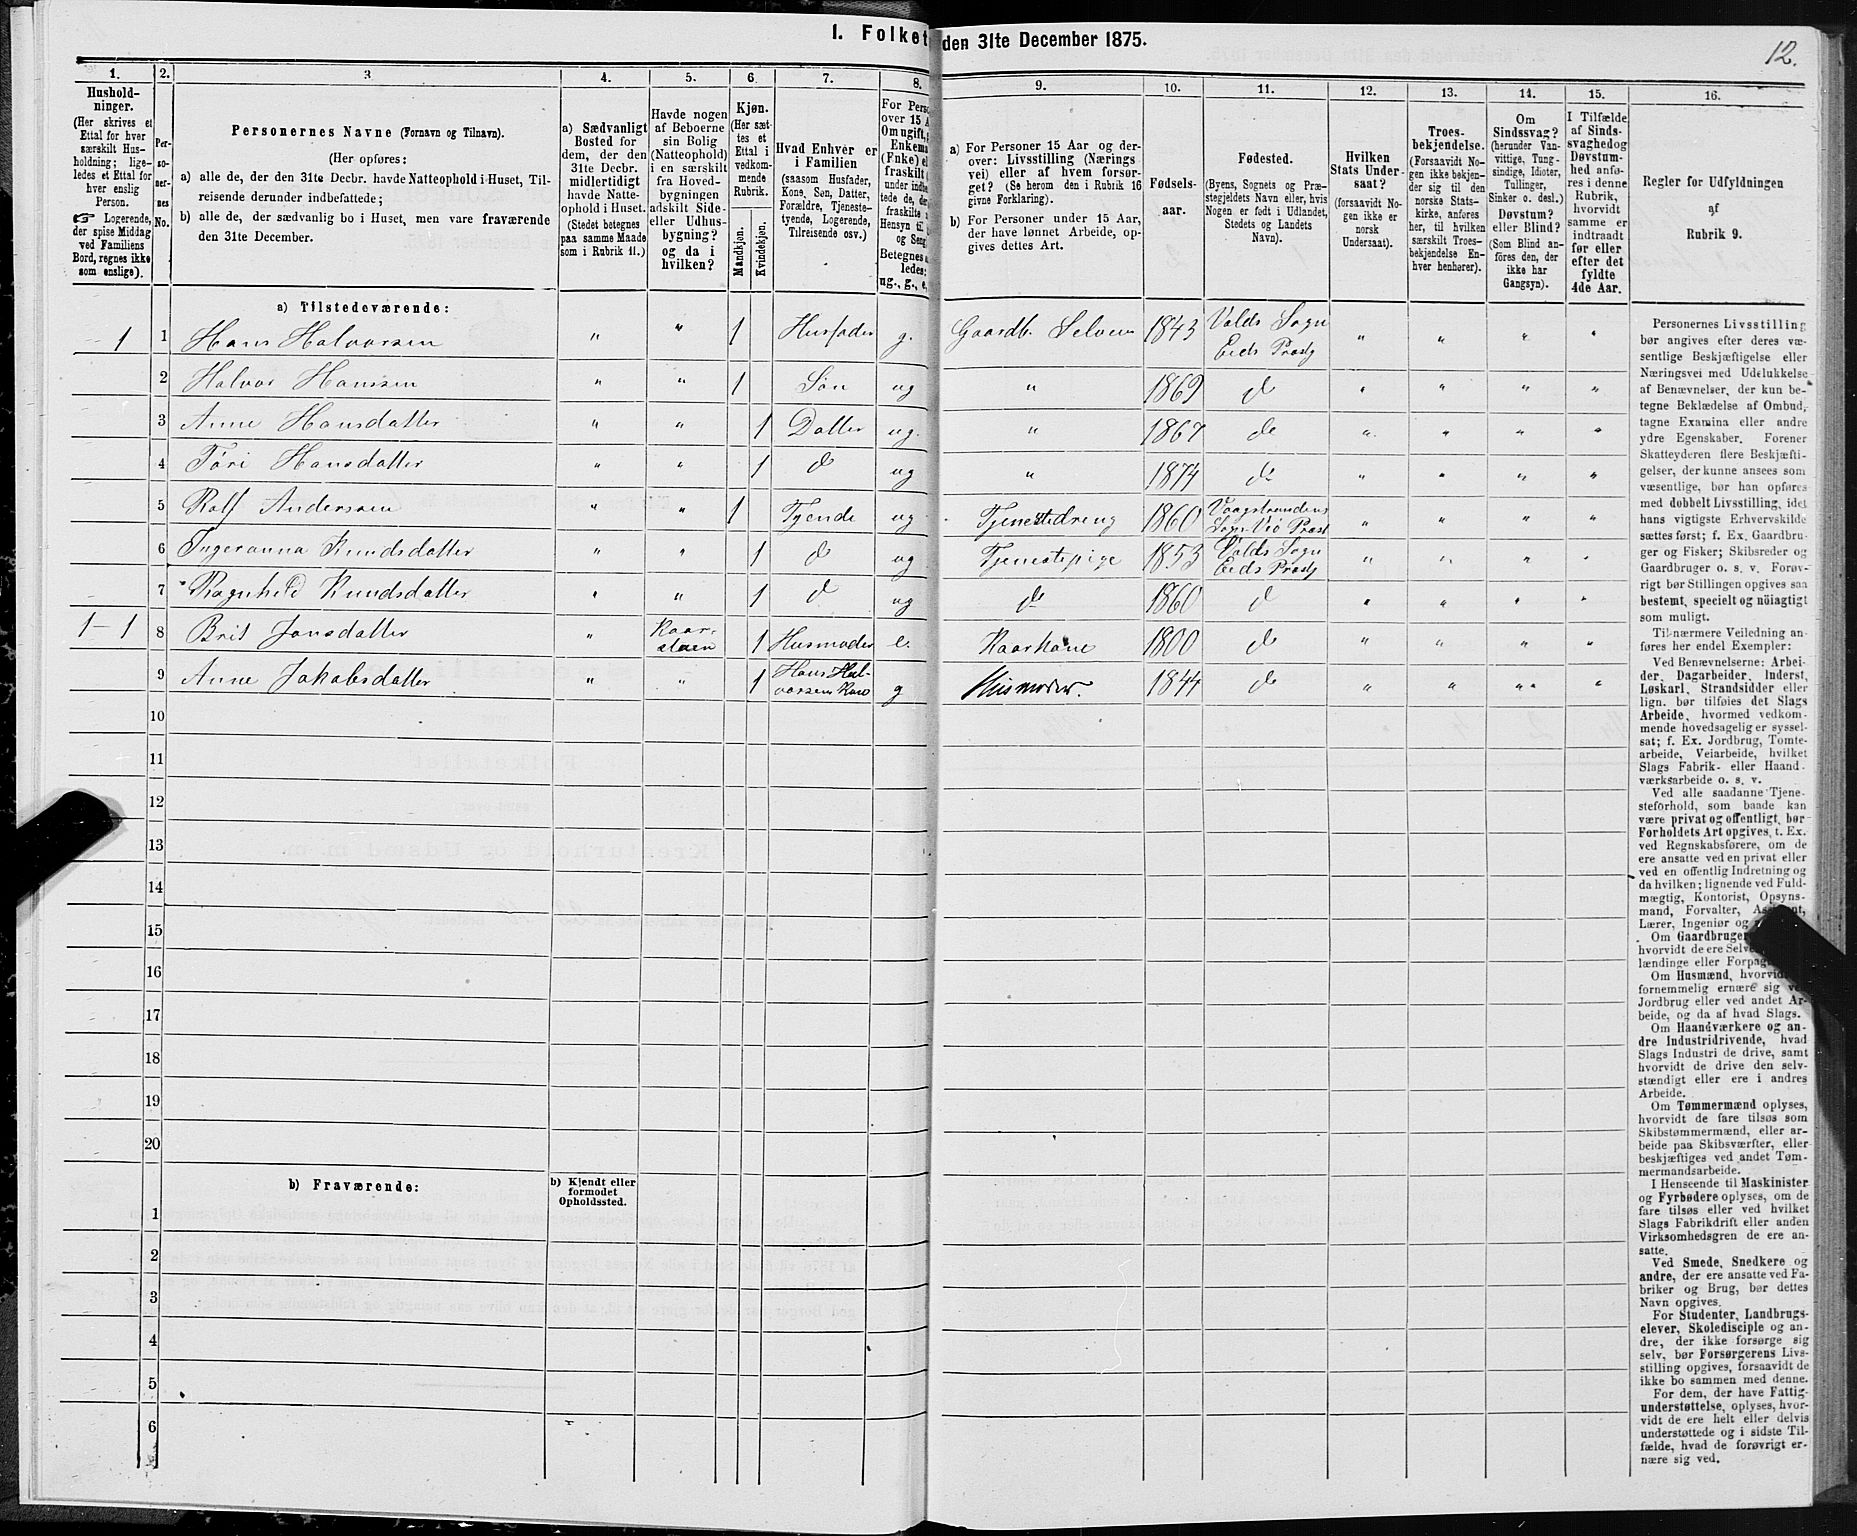 I. Folket den 31te December 1875.
12.
1.
Hushold-
ninger.
(Her skrives et
Ettal for hver
særskilt Hus-
holdning; lige-
ledes et Ettal for
hver enslig
Person.
☞ Logerende,
der spise Middag
ved Familiens
Bord, regnes ikke
som enslige).
2.
Per-
so-
ner-
nes
No.
3
Personernes Navne (Fornavn og Tilnavn).
(Her opføres:
a) alle de, der den 31te Decbr. havde Natteophold i Huset, Til-
reisende derunder indbefattede;
b) alle de, der sædvanlig bo i Huset, men vare fraværende
den 31te December.
4.
a) Sædvanligt
Bosted for
dem, der den
31te Decbr.
midlertidigt
havde Natte-
ophold i Huset.
(Stedet betegnes
paa samme Maade
som i Rubrik 11.)
5.
Havde nogen
af Beboerne
sin Bolig
(Natteophold)
i en særskilt
fra Hoved-
bygningen
adskilt Side-
eller Udhus-
bygning?
og da i
hvilken?
6.
Kjøn.
(Her sæt-
tes et
Ettal i
vedkom-
mende
Rubrik.
Mandkjøn.
Kvindekjøn.
7.
Hvad Enhver er
i Familien
(saasom Husfader,
Kone, Søn, Datter,
Forældre, Tjeneste-
tyende, Logerende,
Tilreisende osv.)
8.
For Pers
over 15 A
Om ugift,
Enkema
(Fnke) el
fraskilt
under indbe
tede de, de
fraskilte
Hensyn til
og Seng
Betegnes
ledes:
ug., g., e,
9.
a) For Personer 15 Aar og der-
over: Livsstilling (Nærings
vei) eller af hvem forsør-
get? (Se herom den i Rubrik 16
givne Forklaring).
b) For Personer under 15 Aar,
der have lønnet Arbeide, op-
gives dettes Art.
10.
Fødsels-
aar.
11.
Fødested.
(Byens, Sognets og Præ-
stegjeldets Navn eller, hvis
Nogen er født i Udlandet,
Stedets og Landets
Navn).
12.
Hvilken
Stats Under-
saat?
(forsaavidt No-
gen ikke er
norsk
Undersaat).
13.
Troes-
bekjendelse.
(Forsaavidt No-
gen ikke bekjen-
der sig til den
norske Stats-
kirke, anføres
her, til hvilken
særskilt Troes-
bekjendelse En-
hver henhører).
14.
Om
Sindssvag?
(herunder Van-
vittige, Tung-
sindige, Idioter,
Tullinger,
Sinker o. desl.)
Døvstum?
eller Blind?
(Som Blind an-
føres den, der
ikke har
Gangsyn).
15.
I Tilfælde
af Sinds-
svaghed og
Døvstum-
hed anfø-
res i denne
Rubrik,
hvorvidt
samme er
indtraadt
før eller
efter det
fyldte
4de Aar.
16.
Regler for Udfyldningen
af
Rubrik 9.
a) Tilstedeværende:
1 1 Hans Halvorsen " " 1 Husfader g. Gaardb. Selveier 1843 Volds Sogn Eids Præstg " " " "
2 Halvor Hanssen " " 1 Søn ug " 1869 do " " " "
3 Anne Hansdatter " " 1 Datter ug. " 1867 do " " " "
4 Tøri Hansdatter " " 1 do ug " 1874 do " " " "
5 Rolf Anderssen " " 1 Tyende ug Tjenestedreng 1860 Vaagstrandens Sogn Veø Præst " " " "
6 Ingeranna Knudsdatter " " 1 do ug Tjenestepige 1853 Volds Sogn Eids Præstg " " " "
7 Ragnhild Knudsdatter " " 1 do ug do 1860 do " " " "
1-1 8 Brit Jonsdatter " Kaar- stuen 1 Husmoder e. Kaarkone 1800 do " " " "
9 Anne Jakobsdatter " " 1 Hans Hal- vorsens Kone g Husmoder. 1844 do " " " "
10
11
12
13
14
15
16
17
18
19
20
b) Fraværende:
b) Kjendt eller
formodet
Opholdssted.
1
2
3
4
5
6
Personernes Livsstilling
bør angives efter deres væ-
sentlige Beskjæftigelse eller
Næringsvei med Udelukkelse
af Benævnelser, der kun be-
tegne Beklædelse af Ombud,
tagne Examina eller andre
ydre Egenskaber. Forener
Skatteyderen flere Beskjæfti-
gelser, der kunne ansees som
væsentlige, bør han opføres
med dobbelt Livsstilling, idet
hans vigtigste Erhvervskilde
sættes først; f. Ex. Gaardbru-
ger og Fisker; Skibsreder og
Gaardbruger o. s. v. Forøv-
rigt bør Stillingen opgives saa
bestemt, specielt og nöiagtigt
som muligt.
Til nærmere Veiledning an-
føres her endel Exempler:
Ved Benævnelserne: Arbei-
der, Dagarbeider, Inderst,
Løskarl, Strandsidder eller
lign. bør tilføies det Slags
Arbeide, hvormed vedkom-
mende hovedsagelig er syssel-
sat; f. Ex. Jordbrug, Tomte-
arbeide, Veiarbeide, hvilket
Slags Fabrik- eller Haand-
værksarbeide o. s. v.
Ved alle saadanne Tjene-
steforhold, som baade kan
være privat og offentligt, bør
Forholdets Art opgives, t. Ex.
ved Regnskabsførere, om de
ere ansatte ved en privat eller
ved en offentlig Indretning og
da hvilken; lignende ved Fuld-
mægtig, Kontorist, Opsyns-
mand, Forvalter, Assistent,
Lærer, Ingeniør og
Om Gaardbruger
hvorvidt de ere Selve
lændinge eller Forpag
Om Husmænd, hvorvidt
fornemmelig ernære sig ved
Jordbrug eller ved andet Ar-
beide, og da af hvad Slags.
Om Haandværkere og an-
dre Industridrivende, hvad
Slags Industri de drive, samt
hvorvidt de drive den selv-
stændigt eller ere i andres
Arbeide.
Om Tømmermænd oplyses,
hvorvidt de fare tilsøs som
Skibstømmermænd, eller ar-
beide paa Skibsværfter, eller
beskjæftiges ved andet Tøm-
mermandsarbeide.
I Henseende til Maskinister
og Fyrbødere oplyses, om de
fare tilsøs eller ved hvilket
Slags Fabrikdrift eller anden
Virksomhedsgren de ere an-
satte.
Ved Smede, Snedkere og
andre, der ere ansatte ved Fa-
briker og Brug, bør dettes
Navn opgives.
For Studenter, Landbrugs-
elever, Skoledisciple og an-
dre, der ikke forsørge sig
selv, bør Forsørgerens Livs-
stilling opgives, forsaavidt de
ikke bo sammen med denne.
For dem, der have Fattig-
understøttelse, oplyses, hvor-
vidt de ere helt eller delvis
understøttede og i sidste Til-
fælde, hvad de forøvrigt er-
nære sig ved.